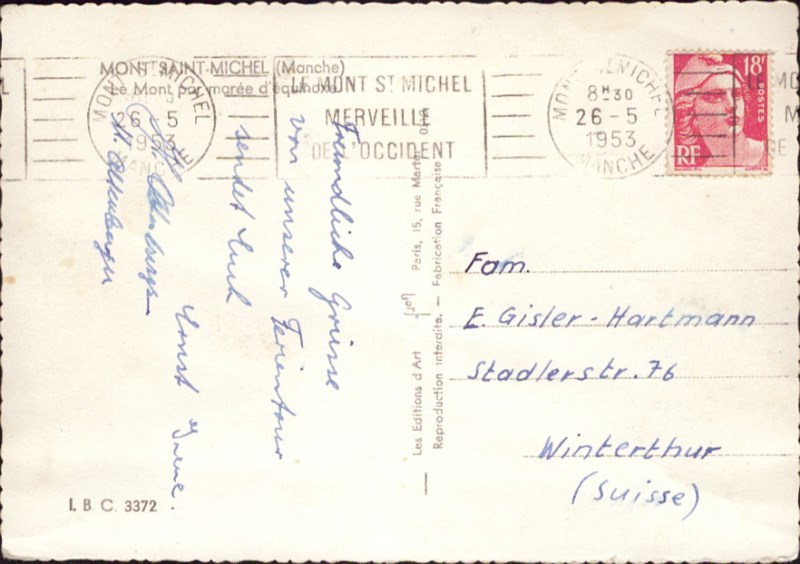 MONT-SAINT-MICHEL (Manche)
Le Mont par marée d'équinoxe
MONT ST MICHEL
26-5
1953
MANCHE
LE MONT ST MICHEL
MERVEILLE
DE L'OCCIDENT
8H30
26-5
1953
MANCHE
18F
POSTES
RF
Freundliche Grüsse
von unserer Ferientour
sendet Euch
Ernst Irene
Les Editions d'Art Paris, 15, rue Martel
Reproduction Interdite. — Fabrication Française
Fam.
E. Gisler-Hartmann
Stadlerstr. 76
Winterthur
(Suisse)
I. B. C. 3372